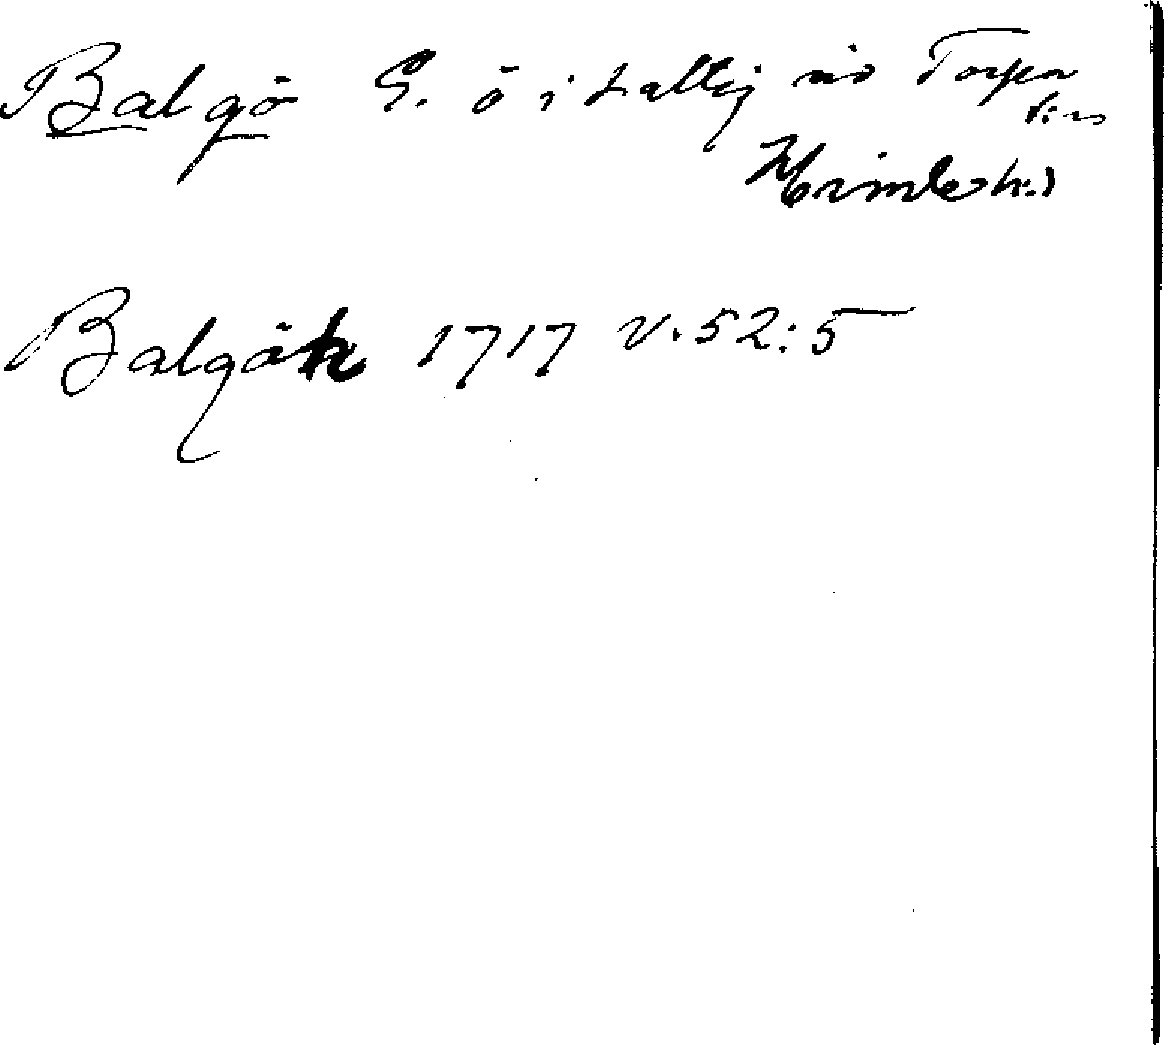 Balgö G. ö i Kattej vid Torpa
s:n
Himle h.)
Balgök 1717 v. 52:5